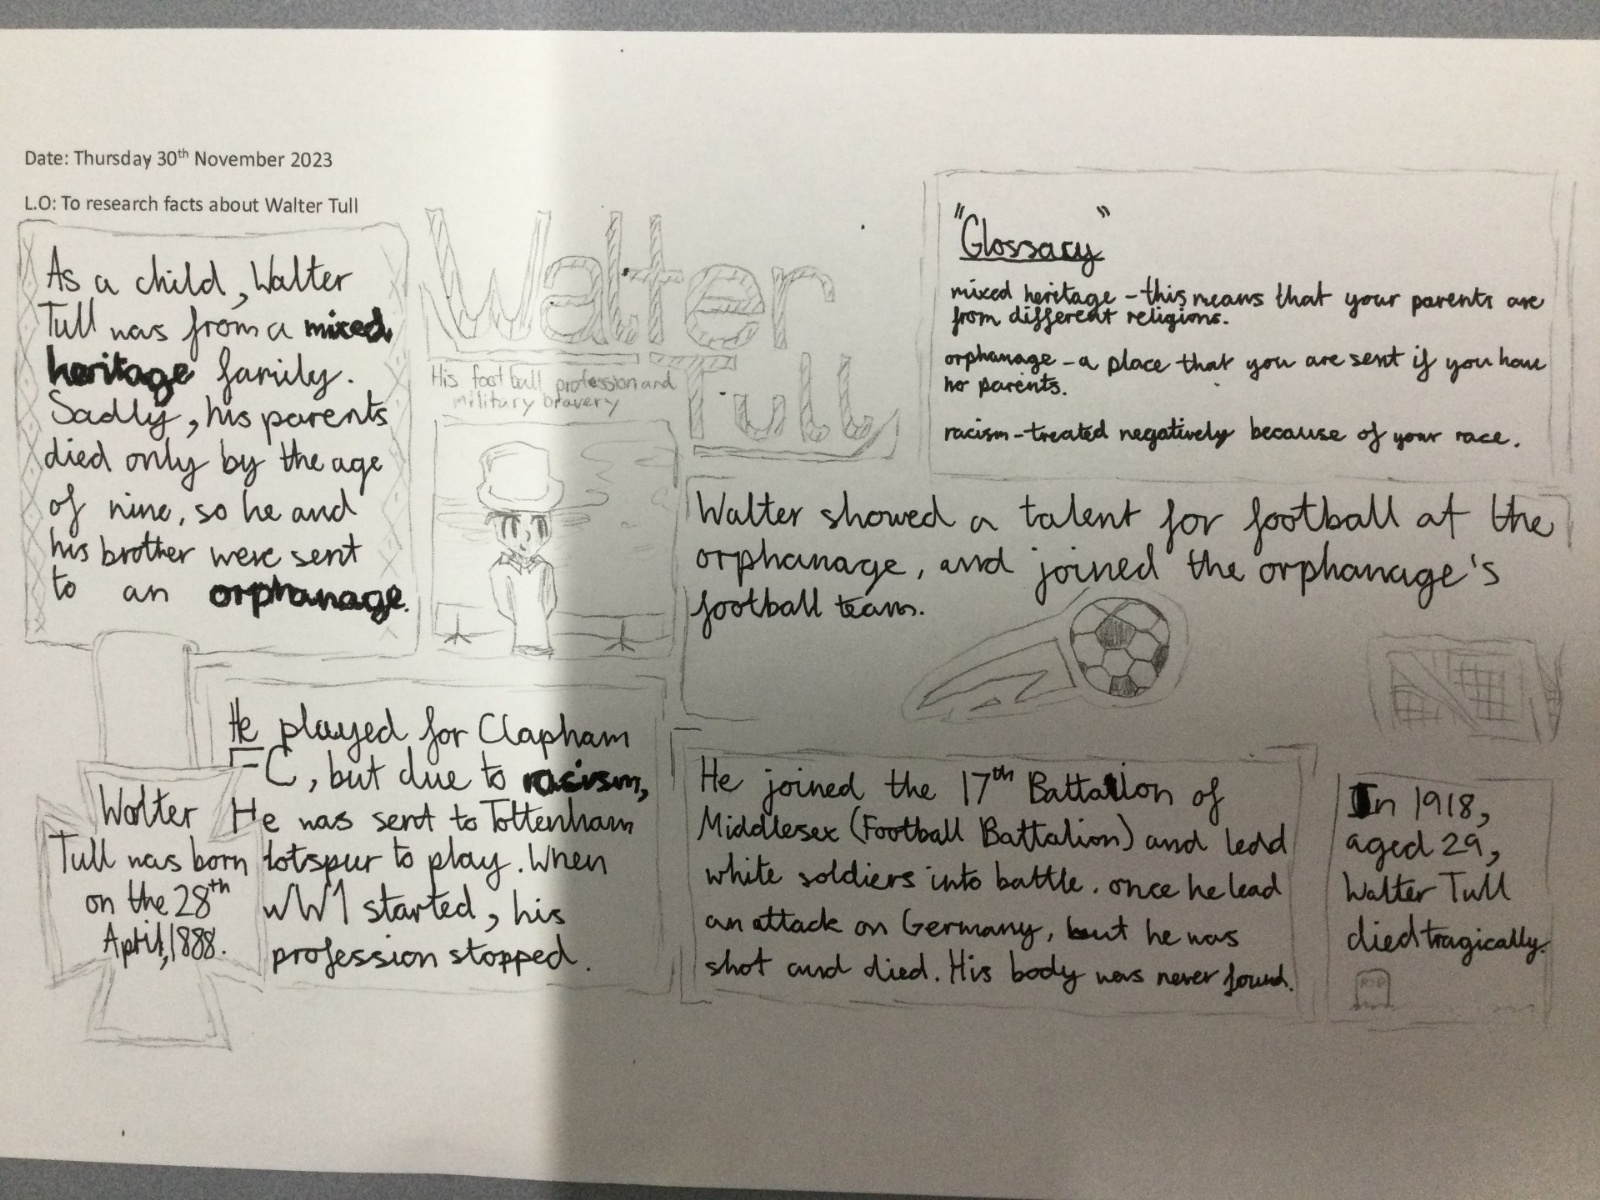 Date: Thursday 30th November 2023
L.O: To research facts about Walter Tull
As a child, Walter
Tull was from a mixed
heritage family.
Sadly, his parents
died only by the age
of nine, so he and
his brother were sent
to an orphanage.
Walter
Tull
His football profession and
military bravery
"Glossary"
mixed heritage - this means that your parents are
from different religions.
orphanage - a place that you are sent if you have
no parents.
racism - treated negatively because of your race.
Walter showed a talent for football at the
orphanage, and joined the orphanage's
football team.
Walter
Tull was born
on the 28th
April, 1888.
He played for Clapham
FC, but due to racism,
He was sent to Tottenham
totspur to play. When
WW1 started, his
profession stopped.
He joined the 17th Battalion of
Middlesex (Football Battalion) and ledd
white soldiers into battle. once he lead
an attack on Germany, but he was
shot and died. His body was never found.
In 1918,
aged 29,
Walter Tull
died tragically.
RIP